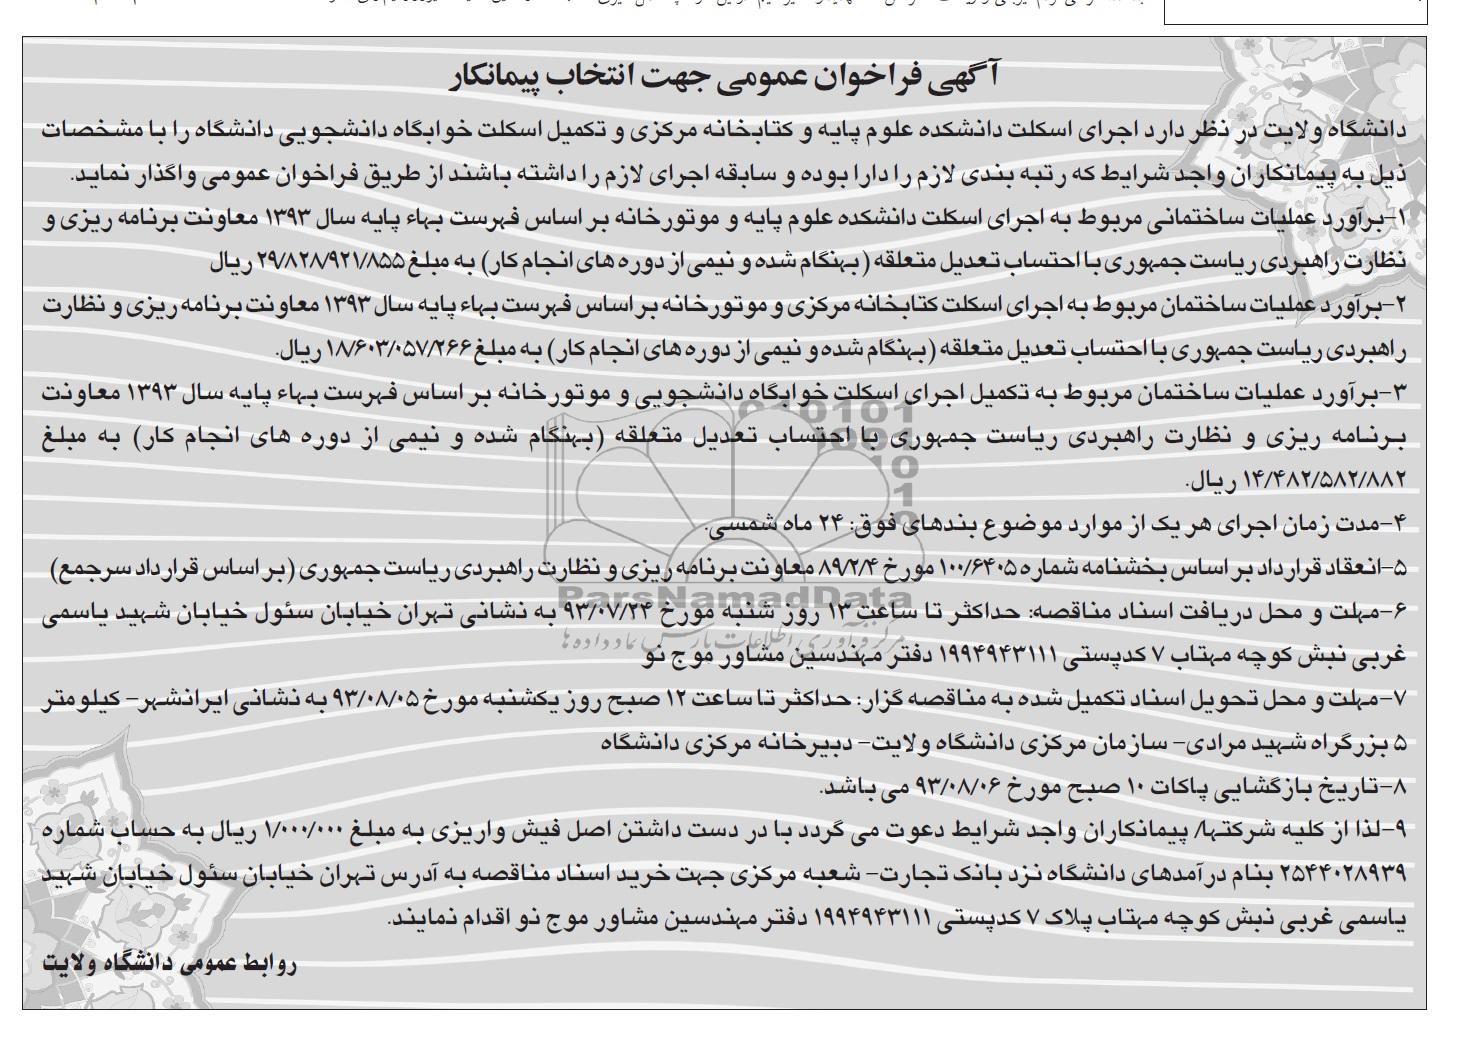 آگهی فراخوان عمومی جهت انتخاب پیمانکار
دانشگاه ولایت در نظر دارد اجرای اسکلت دانشکده علوم پایه و کتابخانه مرکزی و تکمیل اسکلت خوابگاه دانشجویی دانشگاه را با مشخصات
ذیل به پیمانکاران واجد شرایط که رتبه بندی لازم را دارا بوده و سابقه اجرای لازم را داشته باشند از طریق فراخوان عمومی واگذار نماید.
۱-برآورد عملیات ساختمانی مربوط به اجرای اسکلت دانشکده علوم پایه و موتورخانه بر اساس فهرست بهاء پایه سال ۱۳۹۳ معاونت برنامه ریزی و
نظارت راهبردی ریاست جمهوری با احتساب تعدیل متعلقه (بهنگام شده و نیمی از دوره های انجام کار) به مبلغ ۲۹/۸۲۸/۹۲۱/۸۵۵ ریال
۲-برآورد عملیات ساختمان مربوط به اجرای اسکلت کتابخانه مرکزی و موتورخانه بر اساس فهرست بهاء پایه سال ۱۳۹۳ معاونت برنامه ریزی و نظارت
راهبردی ریاست جمهوری با احتساب تعدیل متعلقه (بهنگام شده و نیمی از دوره های انجام کار) به مبلغ ۱۸/۶۰۳/۰۵۷/۲۶۶ ریال.
۳-برآورد عملیات ساختمان مربوط به تکمیل اجرای اسکلت خوابگاه دانشجویی و موتورخانه بر اساس فهرست بهاء پایه سال ۱۳۹۳ معاونت
برنامه ریزی و نظارت راهبردی ریاست جمهوری با احتساب تعدیل متعلقه (بهنگام شده و نیمی از دوره های انجام کار) به مبلغ
۱۴/۴۸۲/۵۸۲/۸۸۲ ریال.
۴-مدت زمان اجرای هر یک از موارد موضوع بندهای فوق: ۲۴ ماه شمسی.
۵-انعقاد قرارداد بر اساس بخشنامه شماره ۱۰۰/۶۴۰۵ مورخ ۸۹/۲/۴ معاونت برنامه ریزی و نظارت راهبردی ریاست جمهوری (بر اساس قرارداد سرجمع)
ParsNamadData
۶-مهلت و محل دریافت اسناد مناقصه: حداکثر تا ساعت ۱۳ روز شنبه مورخ ۹۳/۰۷/۲۴ به نشانی تهران خیابان سئول خیابان شهید یاسمی
مرکز فرآوری اطلاعات پارس نماد داده ها
غربی نبش کوچه مهتاب ۷ کدپستی ۱۹۹۴۹۴۳۱۱۱ دفتر مهندسین مشاور موج نو
۷-مهلت و محل تحویل اسناد تکمیل شده به مناقصه گزار: حداکثر تا ساعت ۱۲ صبح روز یکشنبه مورخ ۹۳/۰۸/۰۵ به نشانی ایرانشهر- کیلو متر
۵ بزرگراه شهید مرادی- سازمان مرکزی دانشگاه ولایت- دبیرخانه مرکزی دانشگاه
۸-تاریخ بازگشایی پاکات ۱۰ صبح مورخ ۹۳/۰۸/۰۶ می باشد.
۹-لذا از کلیه شرکتها/ پیمانکاران واجد شرایط دعوت می گردد با در دست داشتن اصل فیش واریزی به مبلغ ۱/۰۰۰/۰۰۰ ریال به حساب شماره
۲۵۴۴۰۲۸۹۳۹ بنام درآمدهای دانشگاه نزد بانک تجارت- شعبه مرکزی جهت خرید اسناد مناقصه به آدرس تهران خیابان سئول خیابان شهید
یاسمی غربی نبش کوچه مهتاب پلاک ۷ کدپستی ۱۹۹۴۹۴۳۱۱۱ دفتر مهندسین مشاور موج نو اقدام نمایند.
روابط عمومی دانشگاه ولایت